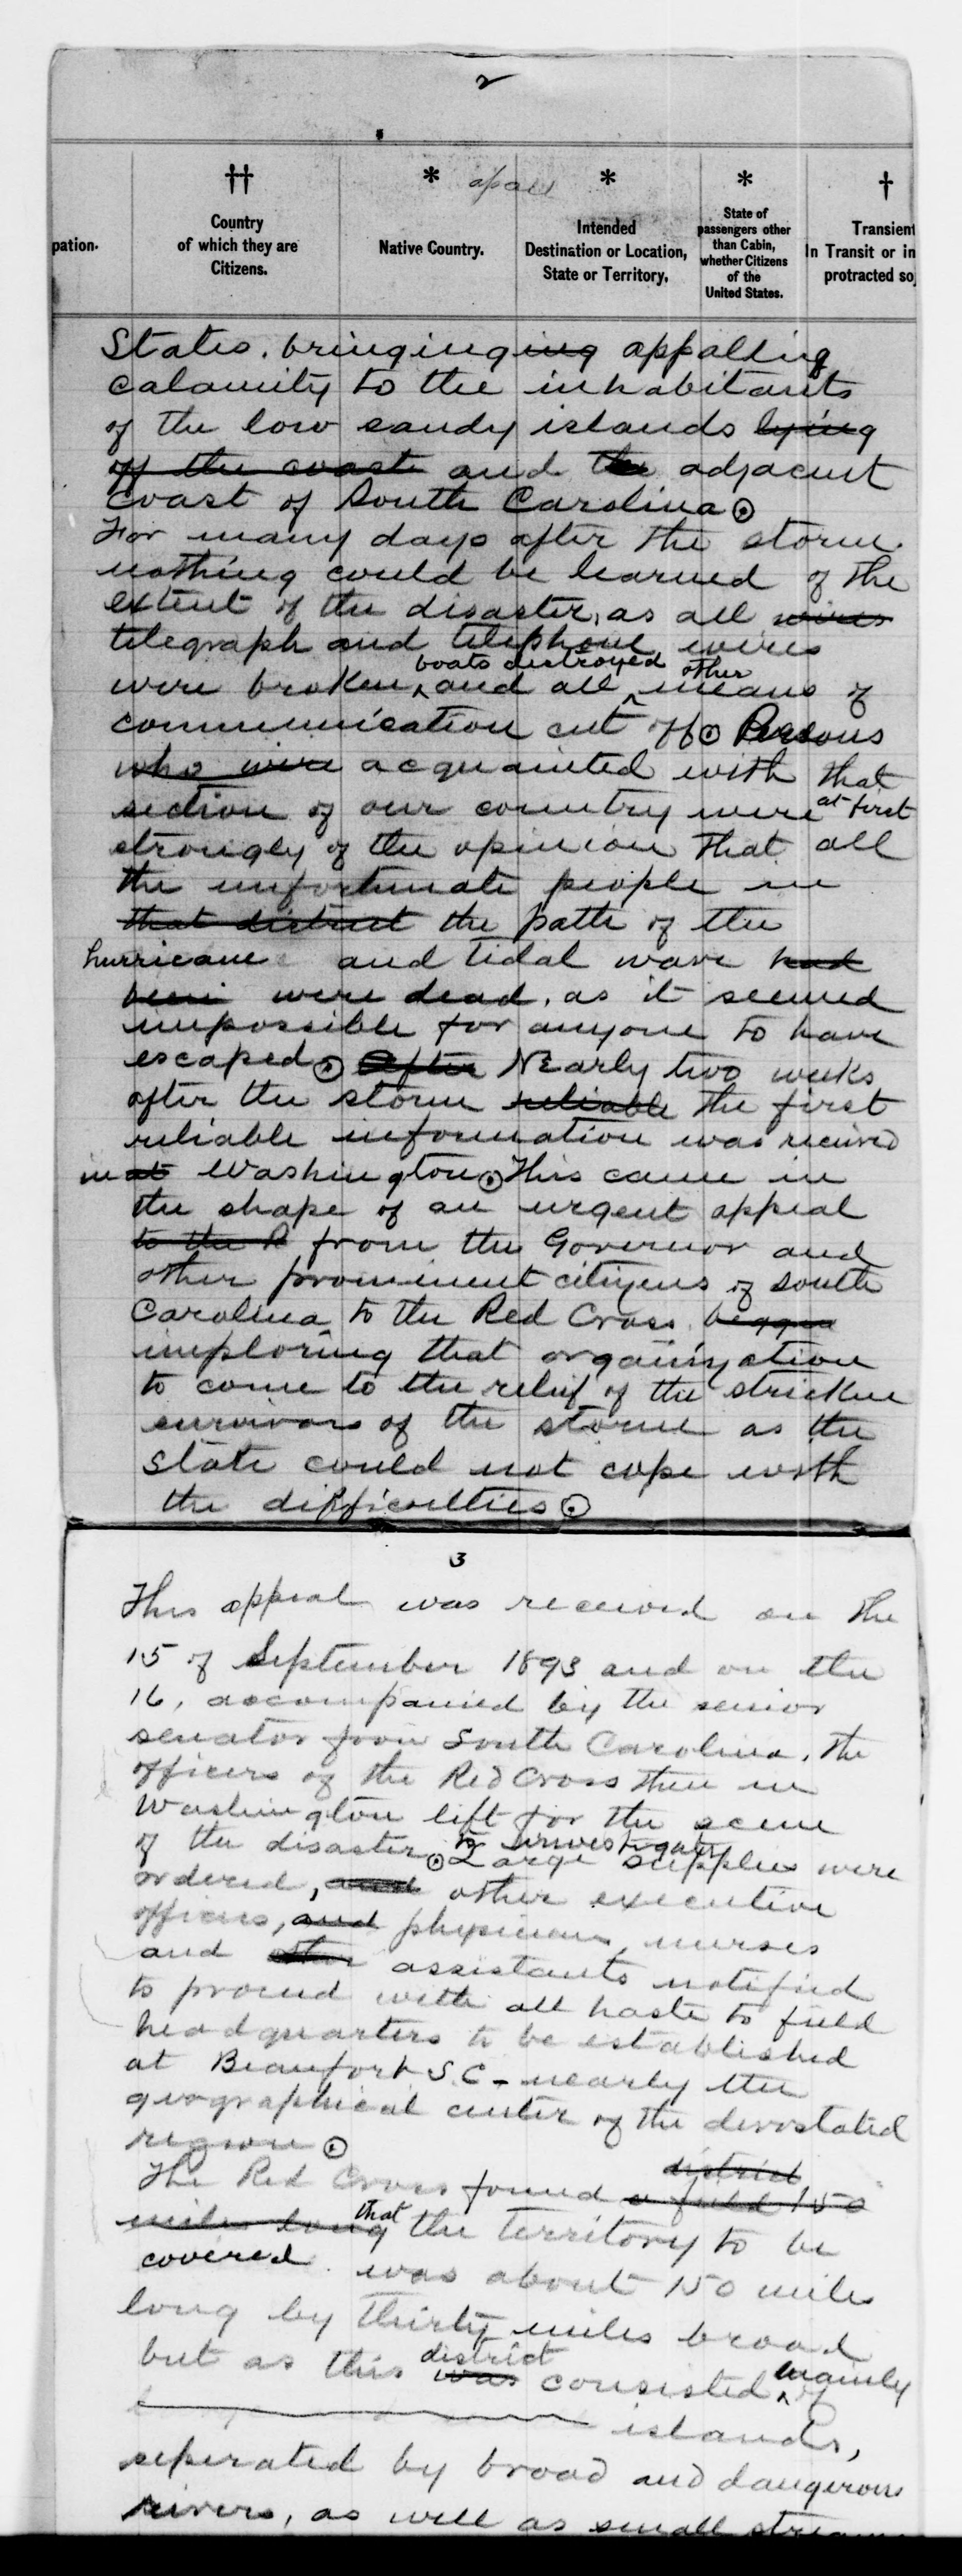 2
††
*
*
*
†
pation.
Country
of which they are
Citizens.
Native Country.
Intended
Destination or Location,
State or Territory.
State of
passengers other
than Cabin,
whether Citizens
of the
United States.
Transient
In Transit or in
protracted so
States. bringinging appalling
calamity to the inhabitants
of the low sandy islands lying
off the coast and the adjacent
coast of South Carolina.
For many days after the storm
nothing could be learned of the
extent of the disaster, as all wires
telegraph and telephone wires
boats destroyed other
were broken, and all means of
communication cut off. Persons
who were acquainted with that
section of our country were at first
strongly of the opinion that all
the unfortunate people in
that district the path of the
hurricane and tidal wave had
been were dead, as it seemed
impossible for anyone to have
escaped. After Nearly two weeks
after the storm reliable the first
reliable information was received
in at Washington. This came in
the shape of an urgent appeal
to the R from the Governor and
other prominent citizens of South
Carolina to the Red Cross
imploring that organization
to come to the relief of the stricken
survivors of the storm as the
State could not cope with
the difficulties.
3
This appeal was received on the
15 of September 1893 and on the
16, accompanied by the senior
senator from South Carolina, the
officers of the Red Cross then in
Washington left for the scene
to investigate
of the disaster. Large supplies were
ordered, and other executive
officers, and physicians, nurses
and other assistants notified
to proceed with all haste to field
headquarters to be established
at Beaufort S.C - nearly the
geographical center of the devastated
region.
district
The Red Cross found a field 150
miles long that the territory to be
covered was about 150 miles
long by thirty miles broad
but as this district was consisted mainly of
islands,
seperated by broad and dangerous
rivers, as well as small streams